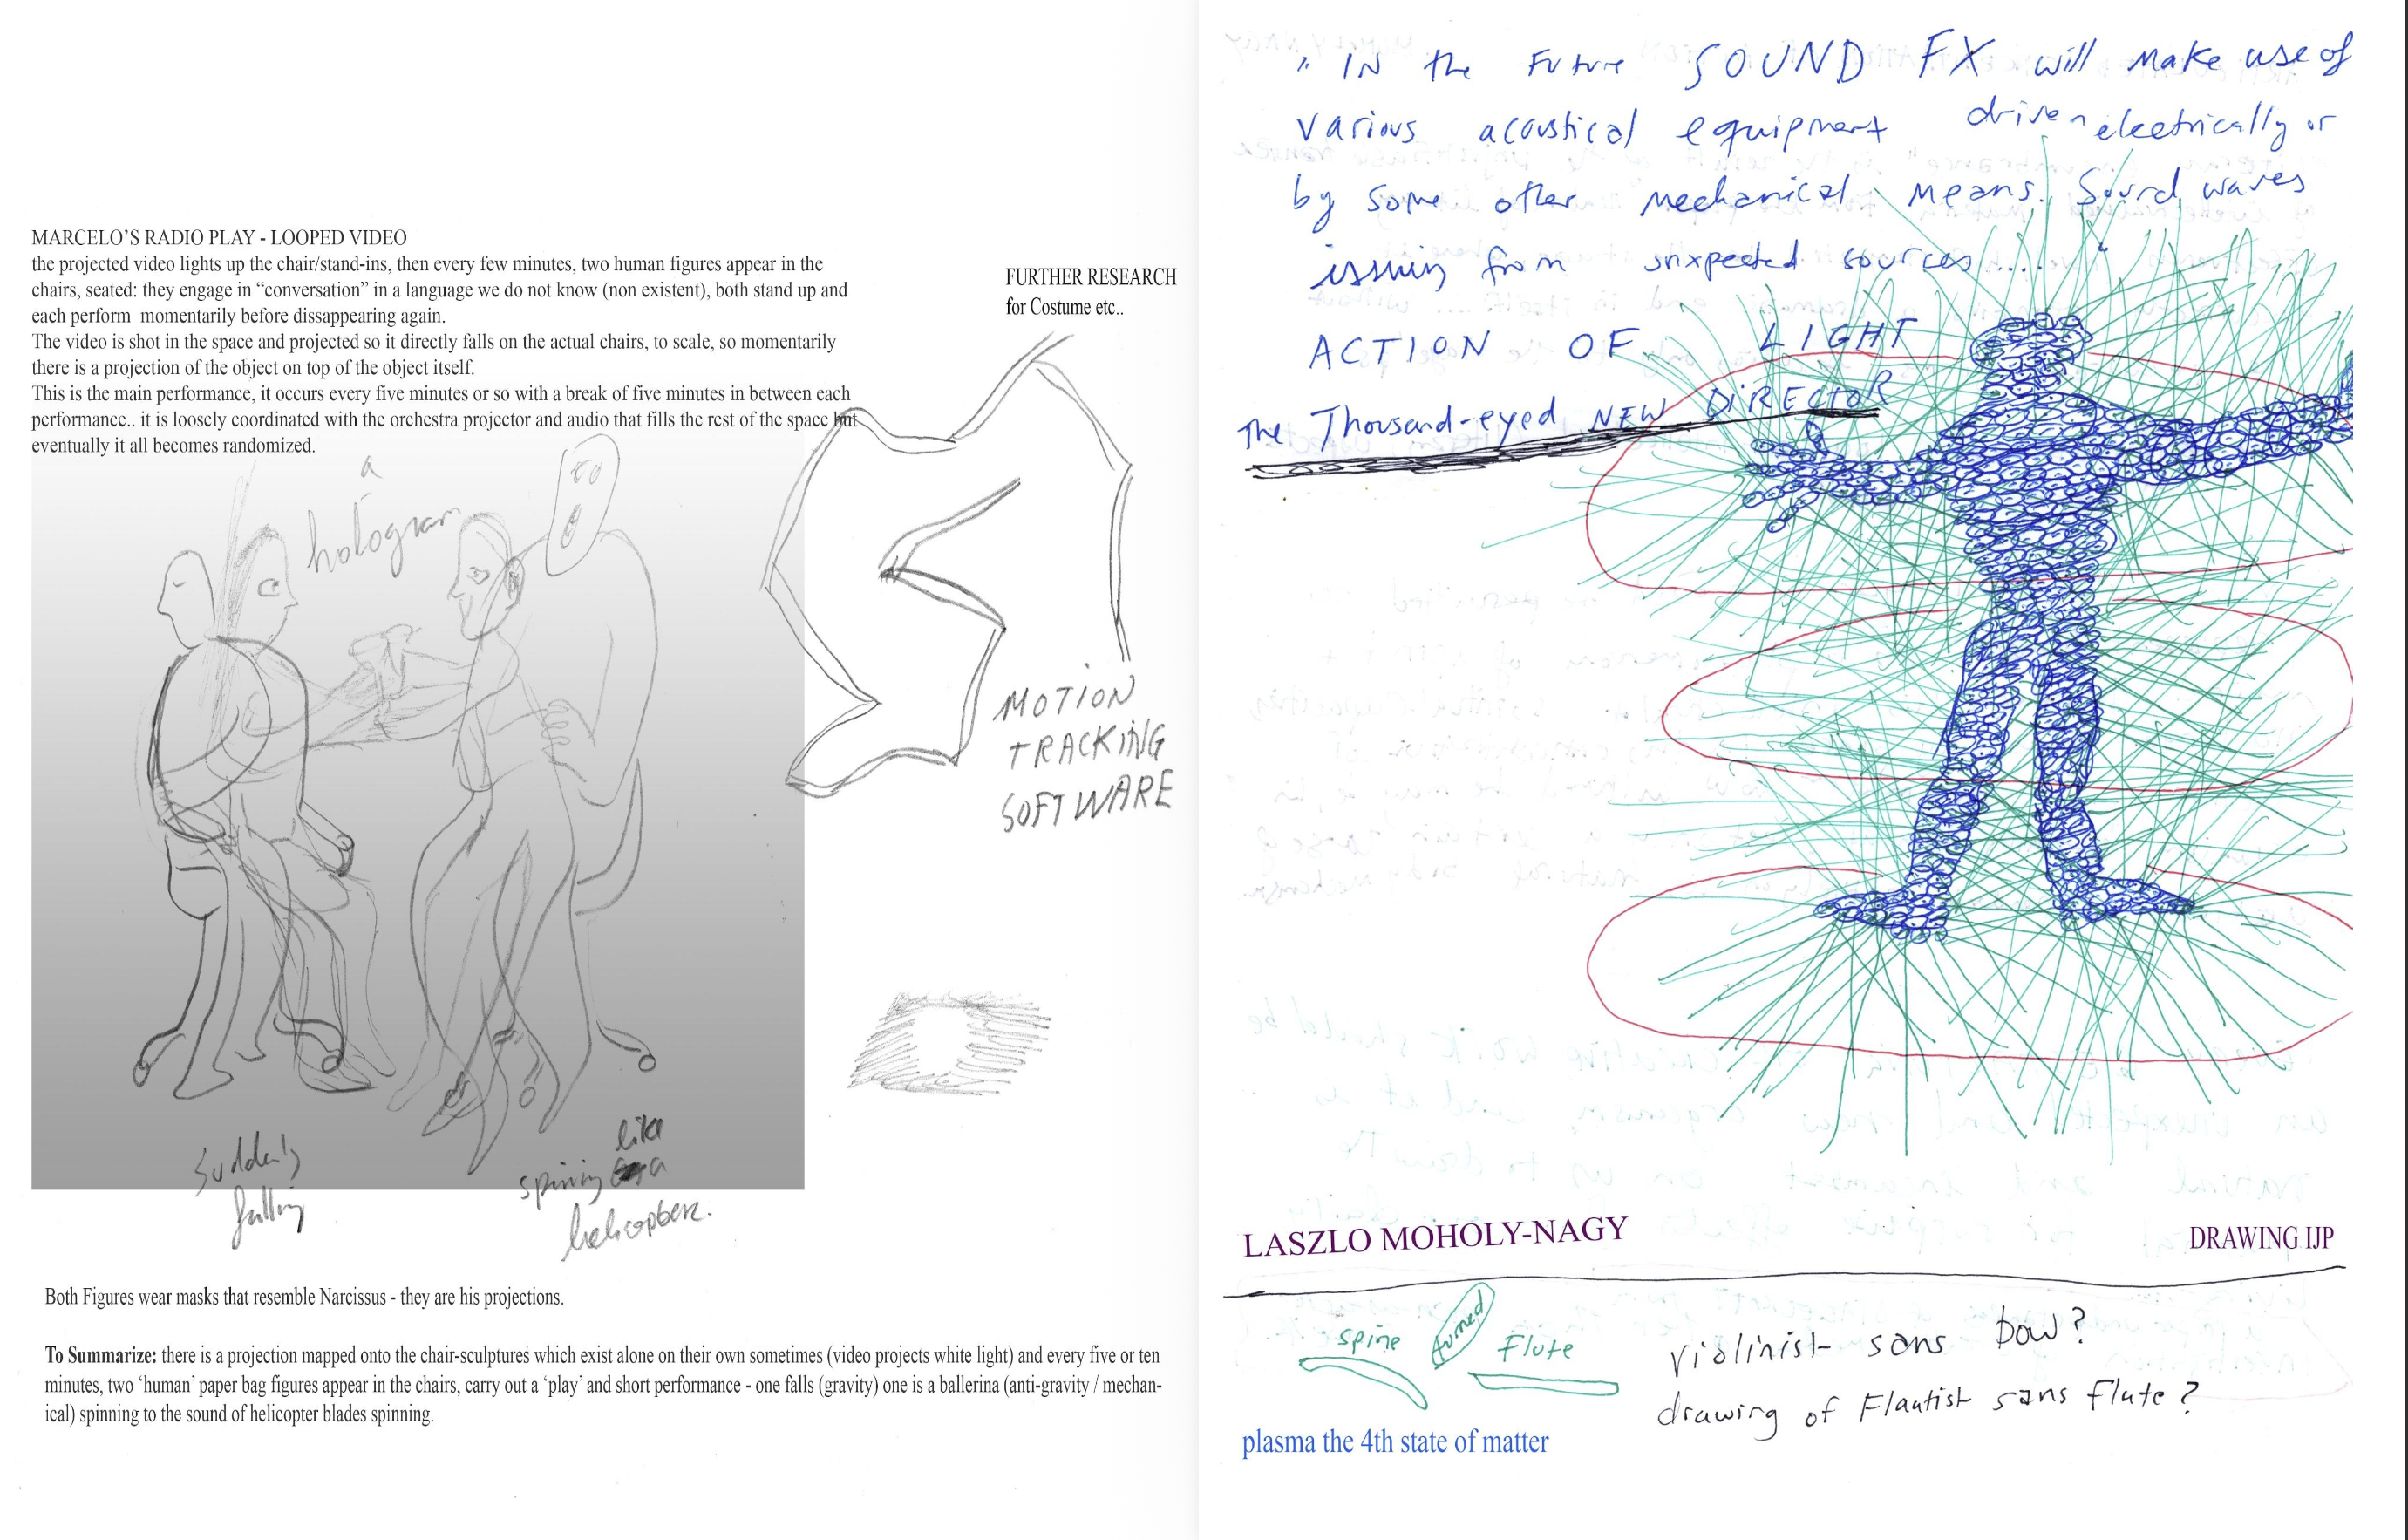 MARCELO'S RADIO PLAY - LOOPED VIDEO
the projected video lights up the chair/stand-ins, then every few minutes, two human figures appear in the
chairs, seated: they engage in “conversation” in a language we do not know (non existent), both stand up and
each perform momentarily before dissappearing again.
The video is shot in the space and projected so it directly falls on the actual chairs, to scale, so momentarily
there is a projection of the object on top of the object itself.
This is the main performance, it occurs every five minutes or so with a break of five minutes in between each
performance.. it is loosely coordinated with the orchestra projector and audio that fills the rest of the space but
eventually it all becomes randomized.
FURTHER RESEARCH
for Costume etc..
a
hologram
MOTION
TRACKING
SOFTWARE
suddenly
falling
like
spining a
helicopter.
Both Figures wear masks that resemble Narcissus - they are his projections.
To Summarize: there is a projection mapped onto the chair-sculptures which exist alone on their own sometimes (video projects white light) and every five or ten
minutes, two ‘human’ paper bag figures appear in the chairs, carry out a ‘play’ and short performance - one falls (gravity) one is a ballerina (anti-gravity / mechan-
ical) spinning to the sound of helicopter blades spinning.
" IN the Future SOUND FX will make use of
various acoustical equipment driven electrically or
by some other mechanical means. Sound waves
issuing from unxpected sources ...."
ACTION OF LIGHT
The Thousand-eyed NEW DiRECtoR
LASZLO MOHOLY-NAGY
DRAWING IJP
spine turned Flute
violinist sans bow?
drawing of Flautist sans flute?
plasma the 4th state of matter